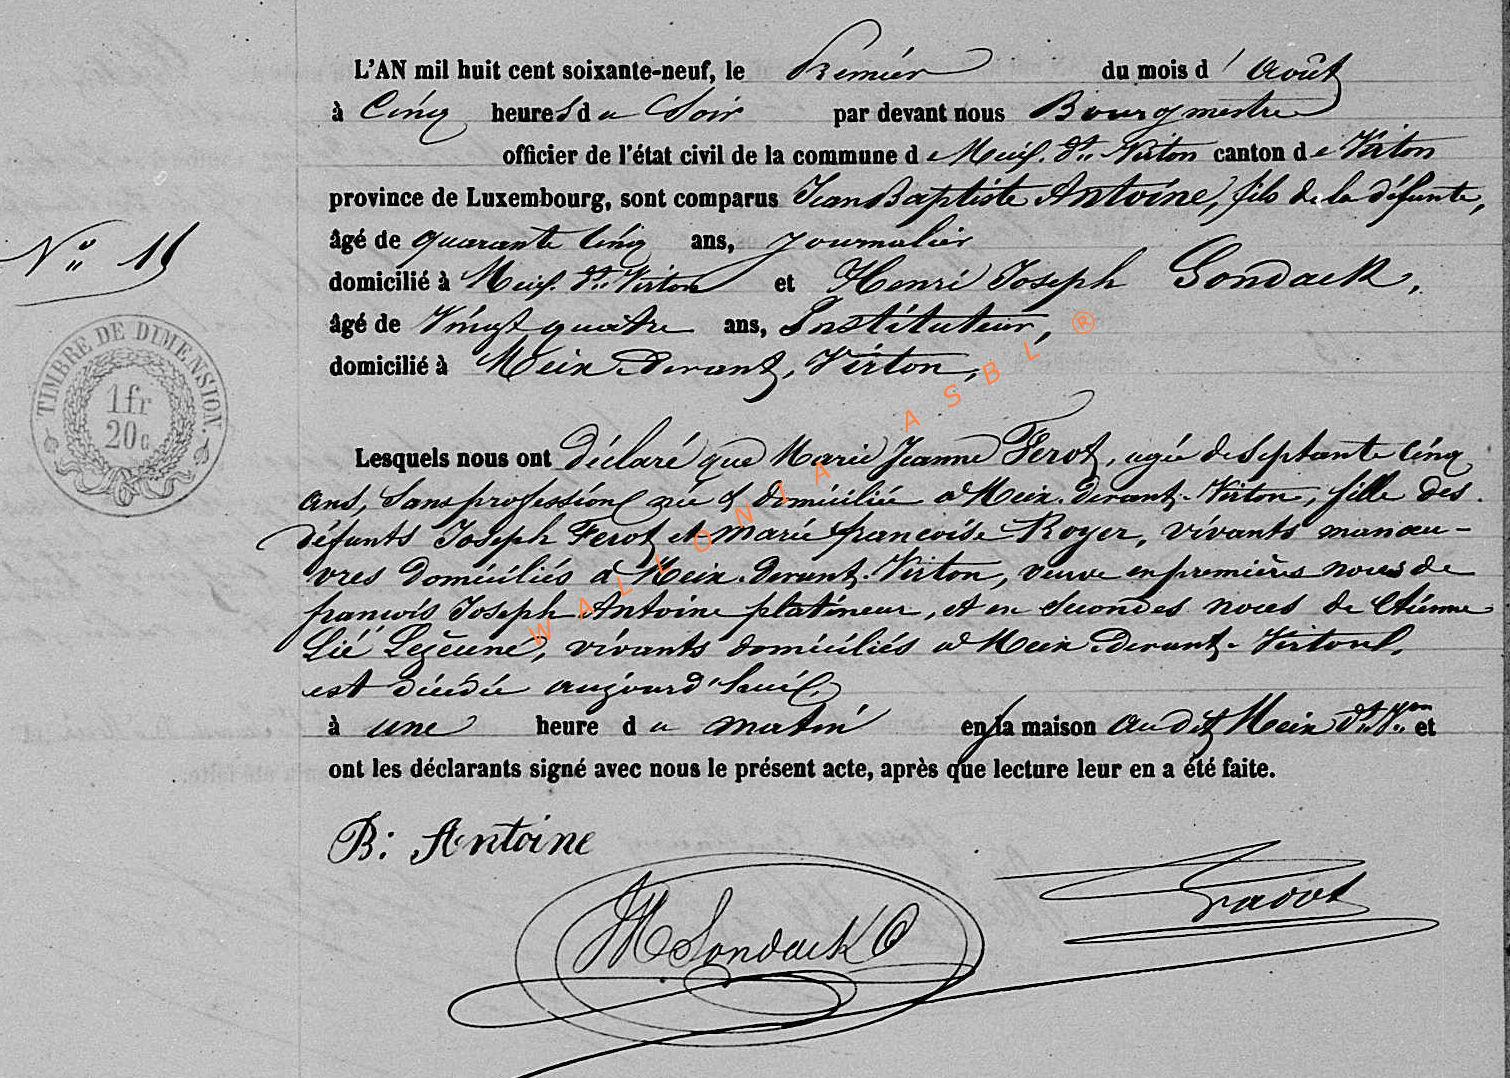 L'AN mil huit cent soixante-neuf, le Premier du mois d'Août
à Cinq heures du Soir par devant nous Bourgmestre
officier de l'état civil de la commune de Meix. dt. Virton canton de Virton
province de Luxembourg, sont comparus Jean Baptiste Antoine, fils de la défunte,
âgé de quarante cinq ans, journalier
domicilié à Meix. dt. Virton et Henri Joseph Gondack,
N° 15
âgé de Vingt quatre ans, Instituteur,
domicilié à Meix-Devant, Virton,
TIMBRE DE DIMENSION.
1 fr
20 c
Lesquels nous ont déclaré que Marie Jeanne Ferot, agée de septante cinq
ans, sans profession née et domiciliée à Meix-devant-Virton, fille des
défunts Joseph Ferot et marie françoise Royer, vivants manœu-
vres domiciliés à Meix-devant-Virton, veuve en premières noces de
françois Joseph Antoine platineur, et en secondes noces de Etienne
Lié Lejeune, vivants domiciliés à Meix-Devant-Virton.
est décédée aujourd'hui,
à une heure du matin en la maison audit Meix dt. Von et
ont les déclarants signé avec nous le présent acte, après que lecture leur en a été faite.
B: Antoine
Gondack
WALLONIA ASBL ®